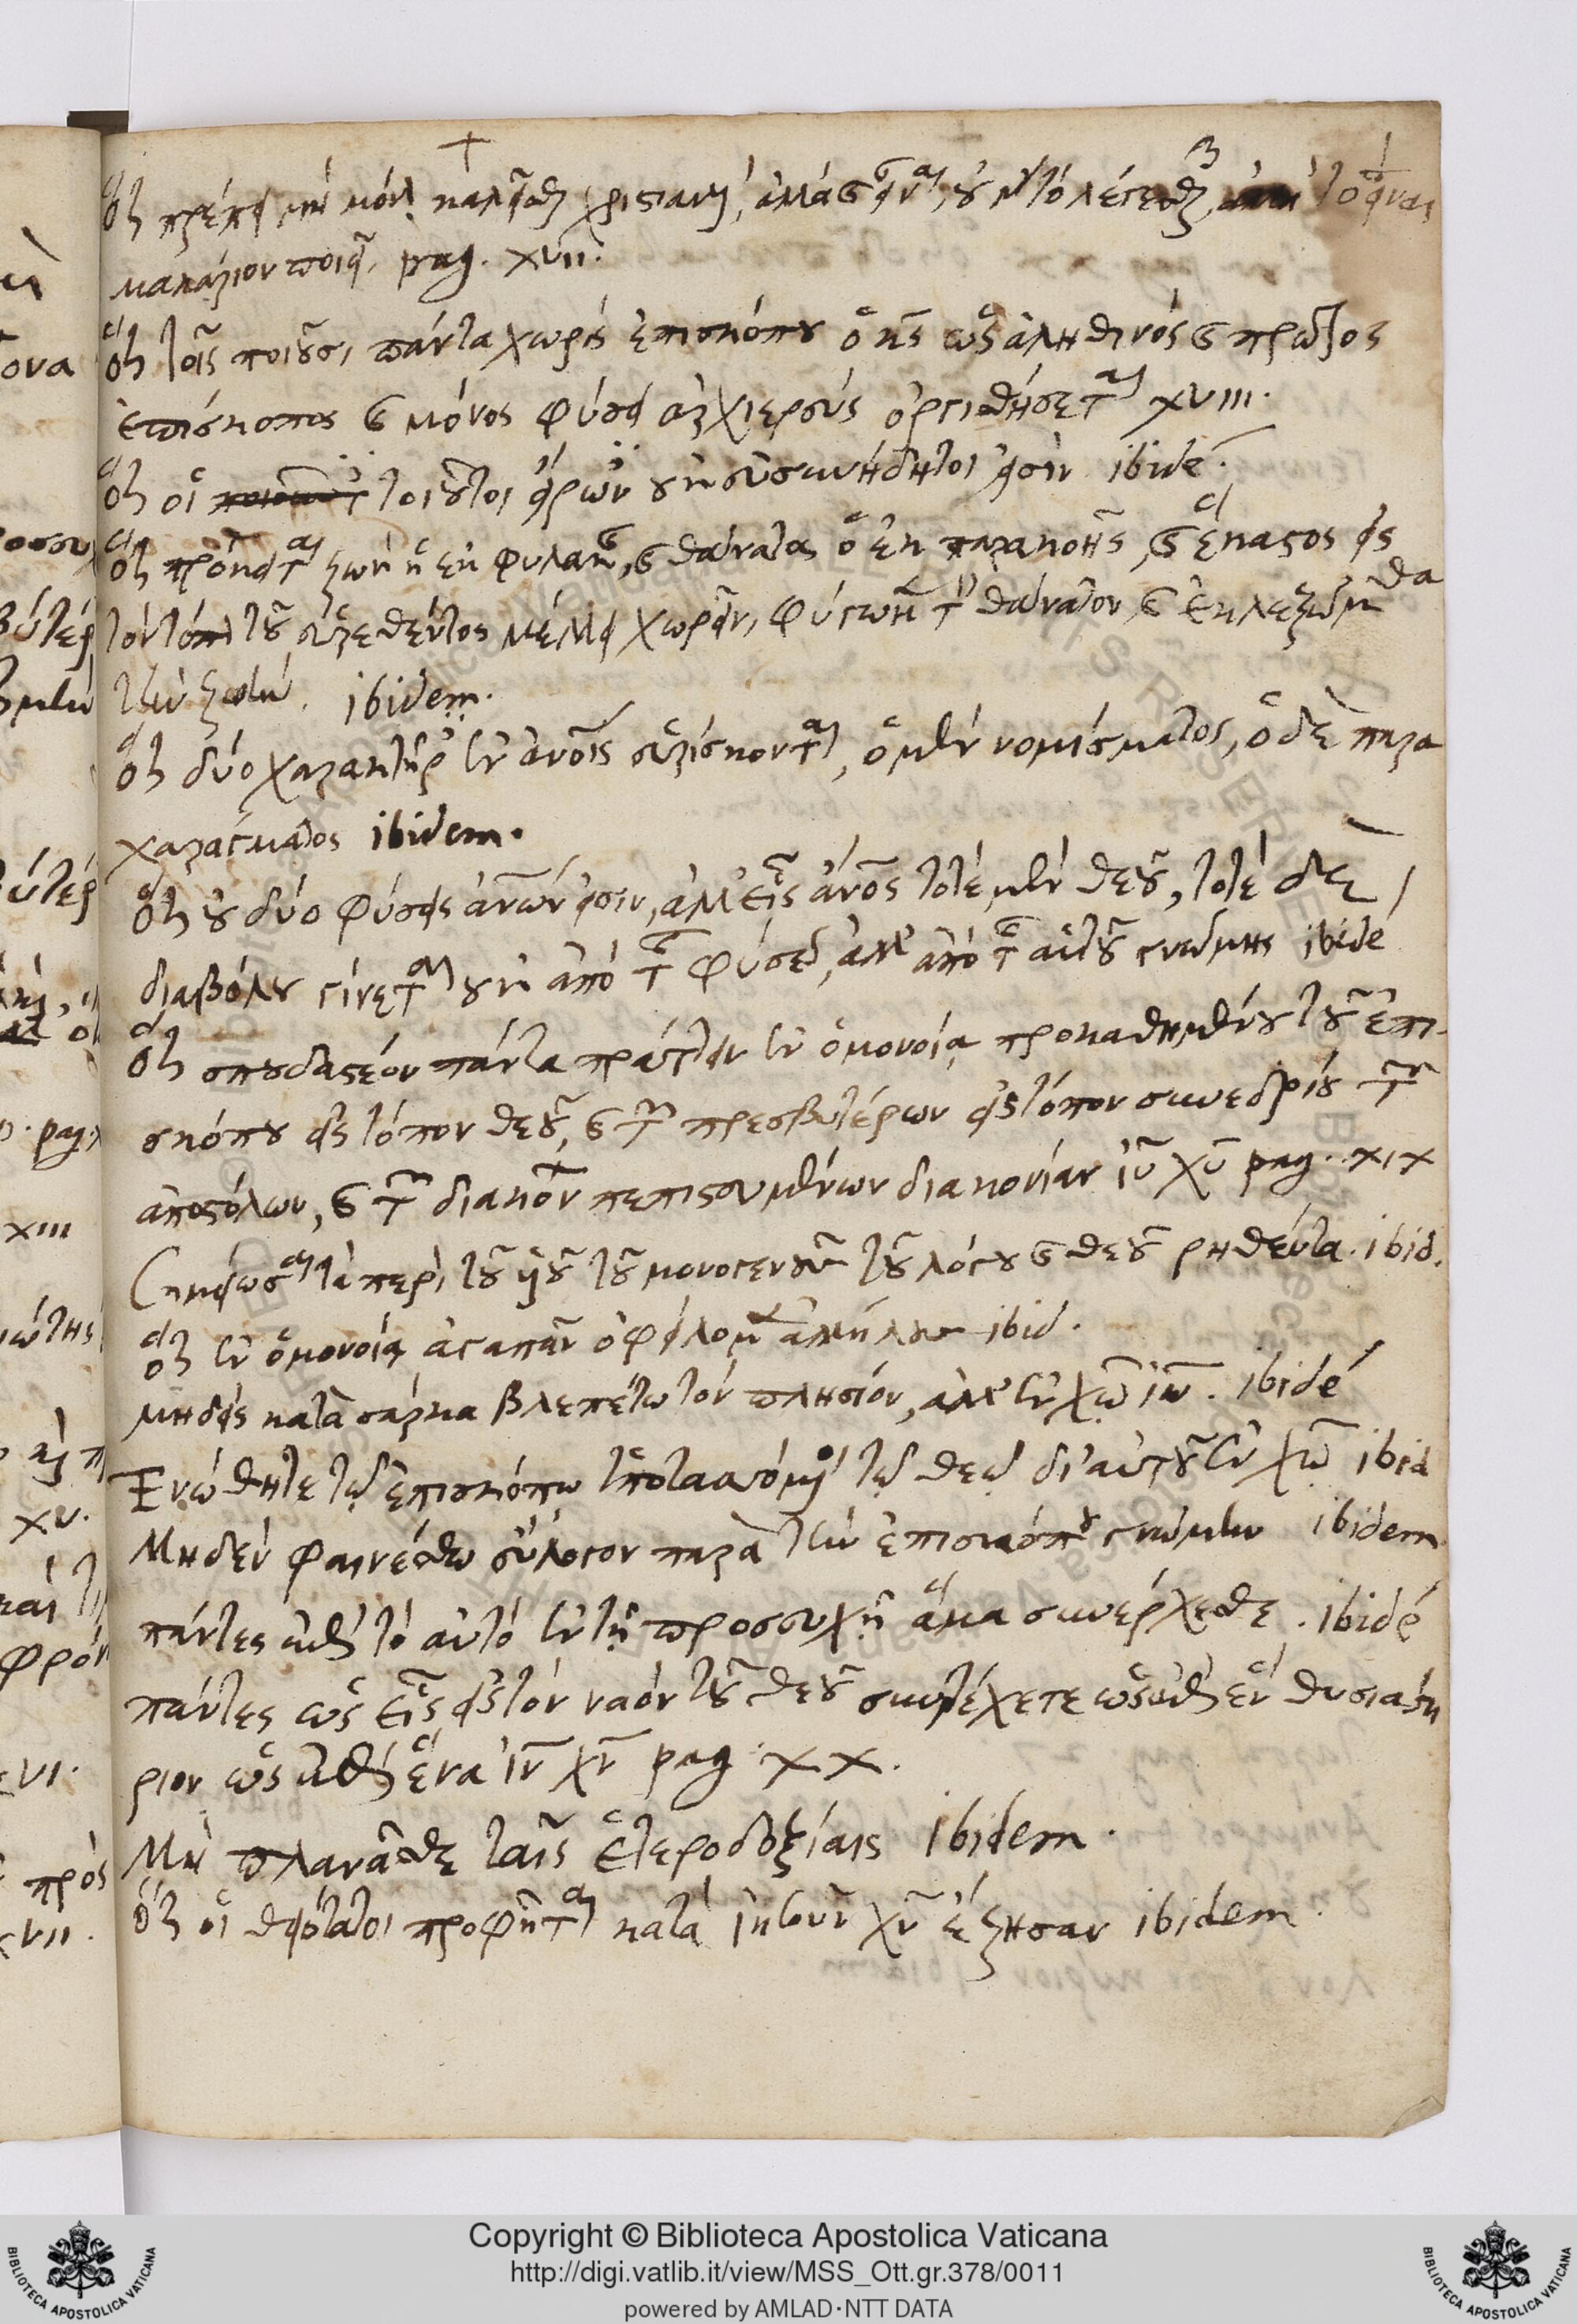 ὅτι πρέπει μὴ μόνον καλεῖσθαι χριστιανοί, ἀλλὰ καὶ εἶναι, οὐ γὰρ τὸ λέγεσθαι, ἀλλὰ τὸ εἶναι
μακάριον ποιεῖ. pag. XVII.
ὅτι τοῖς ποιοῦσι πάντα χωρὶς ἐπισκόπου ὁ κς ὡς ἀληθινὸς καὶ πρῶτος
ἐπίσκοπος καὶ μόνος φύσει ἀρχιερεὺς ὀργισθήσεται XVIII.
ὅτι οἱ τοιοῦτοι εἴρων οὐκ εὐσυνήδητοι εἰσιν ibidé.
ὅτι πρόκειται ζωὴ ἡ ἐκ φυλακῆς, καὶ θάνατος ὁ ἐκ παρακοῆς, καὶ ἕκαστος εἰς
τὸν τόπον τοῦ αἱρεθέντος μέλλει χωρεῖν, φύγωμεν τὸν θάνατον, καὶ ἐκλεξώμεθα
τὴν ζωήν. ibidem.
ὅτι δύο χαρακτῆρες ἐν ἀνοις εὑρίσκονται, ὁ μὲν νομίσματος, ὁ δὲ παρα
χαράγματος ibidem.
ὅτι οὐ δύο φύσεις ἀνων εἰσιν, ἀλλ' εἷς ἀνος τοτὲ μὲν θεοῦ, τοτὲ δὲ
διαβόλου γίνεται οὐκ ἀπὸ τῆς φύσεως, ἀλλ' ἀπὸ τῆς αὑτοῦ γνώμης ibidé
ὅτι σπουδαστέον πάντα πράττειν ἐν ὁμονοίᾳ προκαθημένου τοῦ ἐπι-
σκόπου εἰς τόπον θεοῦ, καὶ τῶν πρεσβυτέρων εἰς τόπον συνεδρίου τῶν
ἀποστόλων, καὶ τῶν διακόνων πεπιστευμένων διακονίαν ιυ χυ pag. XIX
Σημείωσαι τὰ περὶ τοῦ υἱοῦ τοῦ μονογενοῦς τοῦ λόγου καὶ θεοῦ ρηθέντα. ibid.
ὅτι ἐν ὁμονοίᾳ ἀγαπᾶν ὀφείλομεν ἀλλήλους ibid.
μηδεὶς κατὰ σάρκα βλεπέτω τὸν πλησίον, ἀλλ' ἐν χω ιυ. ibidé
Ἑνώθητε τῷ ἐπισκόπῳ ὑποτασσόμενοι τῷ θεῷ δι' αὐτοῦ ἐν χω ibid
Μηδὲν φαινέσθω εὔλογον παρὰ τὴν ἐπισκόπου γνώμην ibidem
πάντες ἐπὶ τὸ αὐτὸ ἐν τῇ προσευχῇ ἅμα συνέρχεσθε. ibidé
πάντες ὡς εἷς εἰς τὸν ναὸν τοῦ θεοῦ συντρέχετε ὡς ἐπὶ ἓν θυσιαστη
ριον ὡς ἐπὶ ἕνα ιν χν pag. XX.
Μὴ πλανᾶσθε ταῖς ἑτεροδοξίαις ibidem.
ὅτι οἱ θειότατοι προφῆται κατὰ ἰησοῦν χν ἔζησαν ibidem.
Copyright © Biblioteca Apostolica Vaticana
http://digi.vatlib.it/view/MSS_Ott.gr.378/0011
powered by AMLAD·NTT DATA